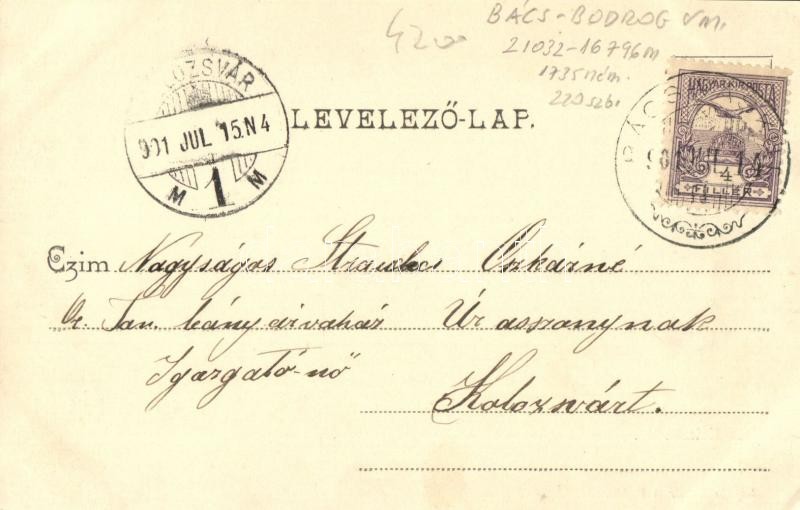 4200
BÁCS-BODROG VM.
21032-16796m
1735 ném.
220 szb.
OZSVÁR
901 JUL 15.N4
M 1 M
LEVELEZŐ-LAP.
MAGYAR KIR. POSTA
4
FILLÉR
BÁCS
Czim Nagyságos Oszkárné
Or. Tan. leányárvaház Úr asszonynak
Igazgató-nő
Kolozsvárt.